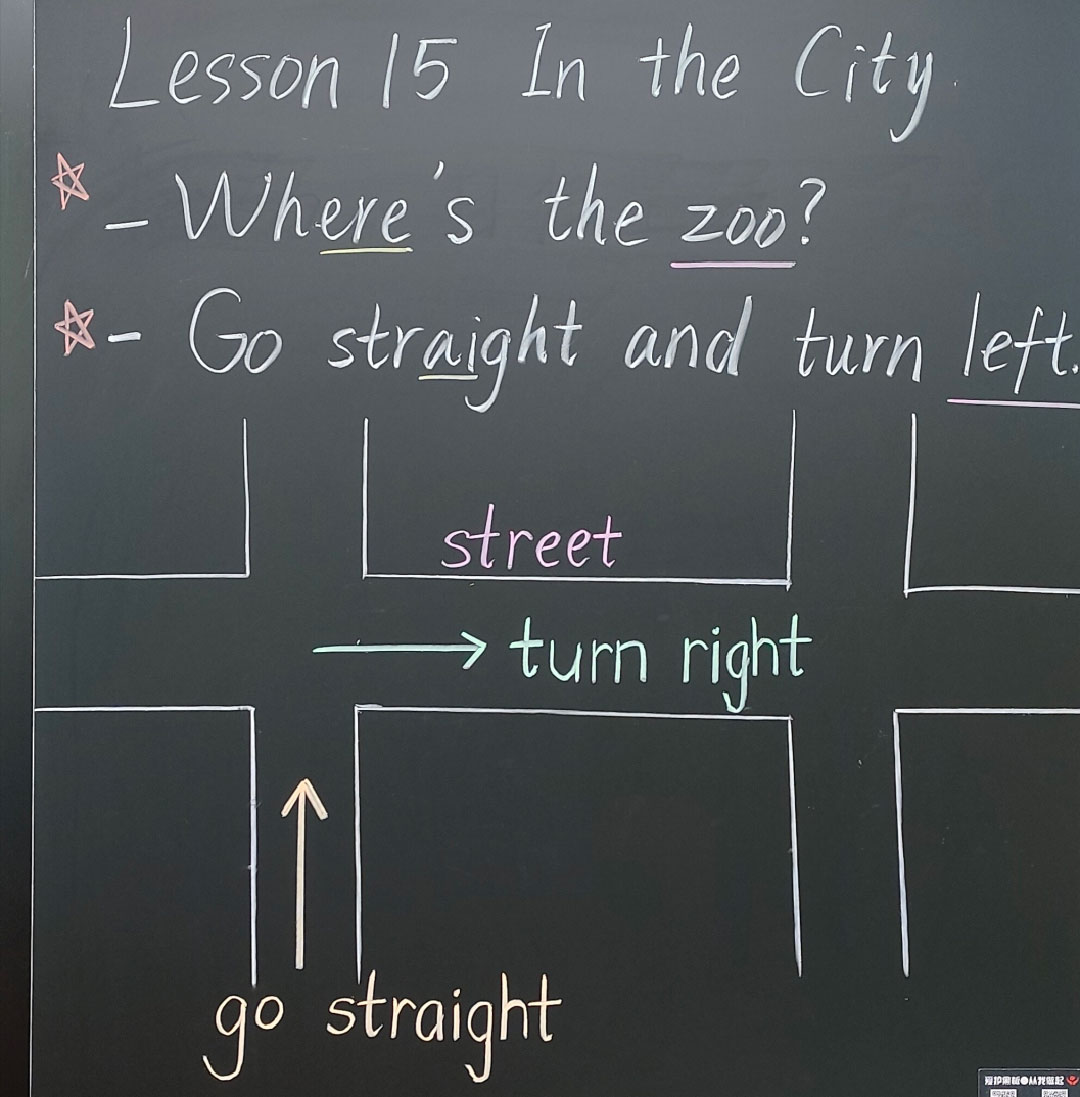 Lesson 15 In the City
- Where's the zoo?
- Go straight and turn left.
street
turn right
go straight